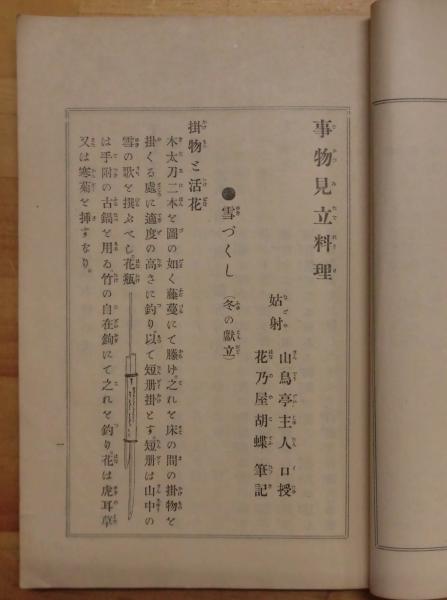 事物見立料理
姑射
山鳥亭主人口授
花乃屋胡蝶筆記
雪づくし（冬の獻立）
掛物と活花
木太刀二本を圖の如く藤蔓にて縢け之れを床の間の掛物を
掛くる處に適度の高さに釣り以て短册掛とす短册は山中の
雪の歌を撰ぶべし花瓶
は手附の古鍋を用る竹の自在鉤にて之れを釣り花は虎耳草
又は寒菊を挿すなり。
一